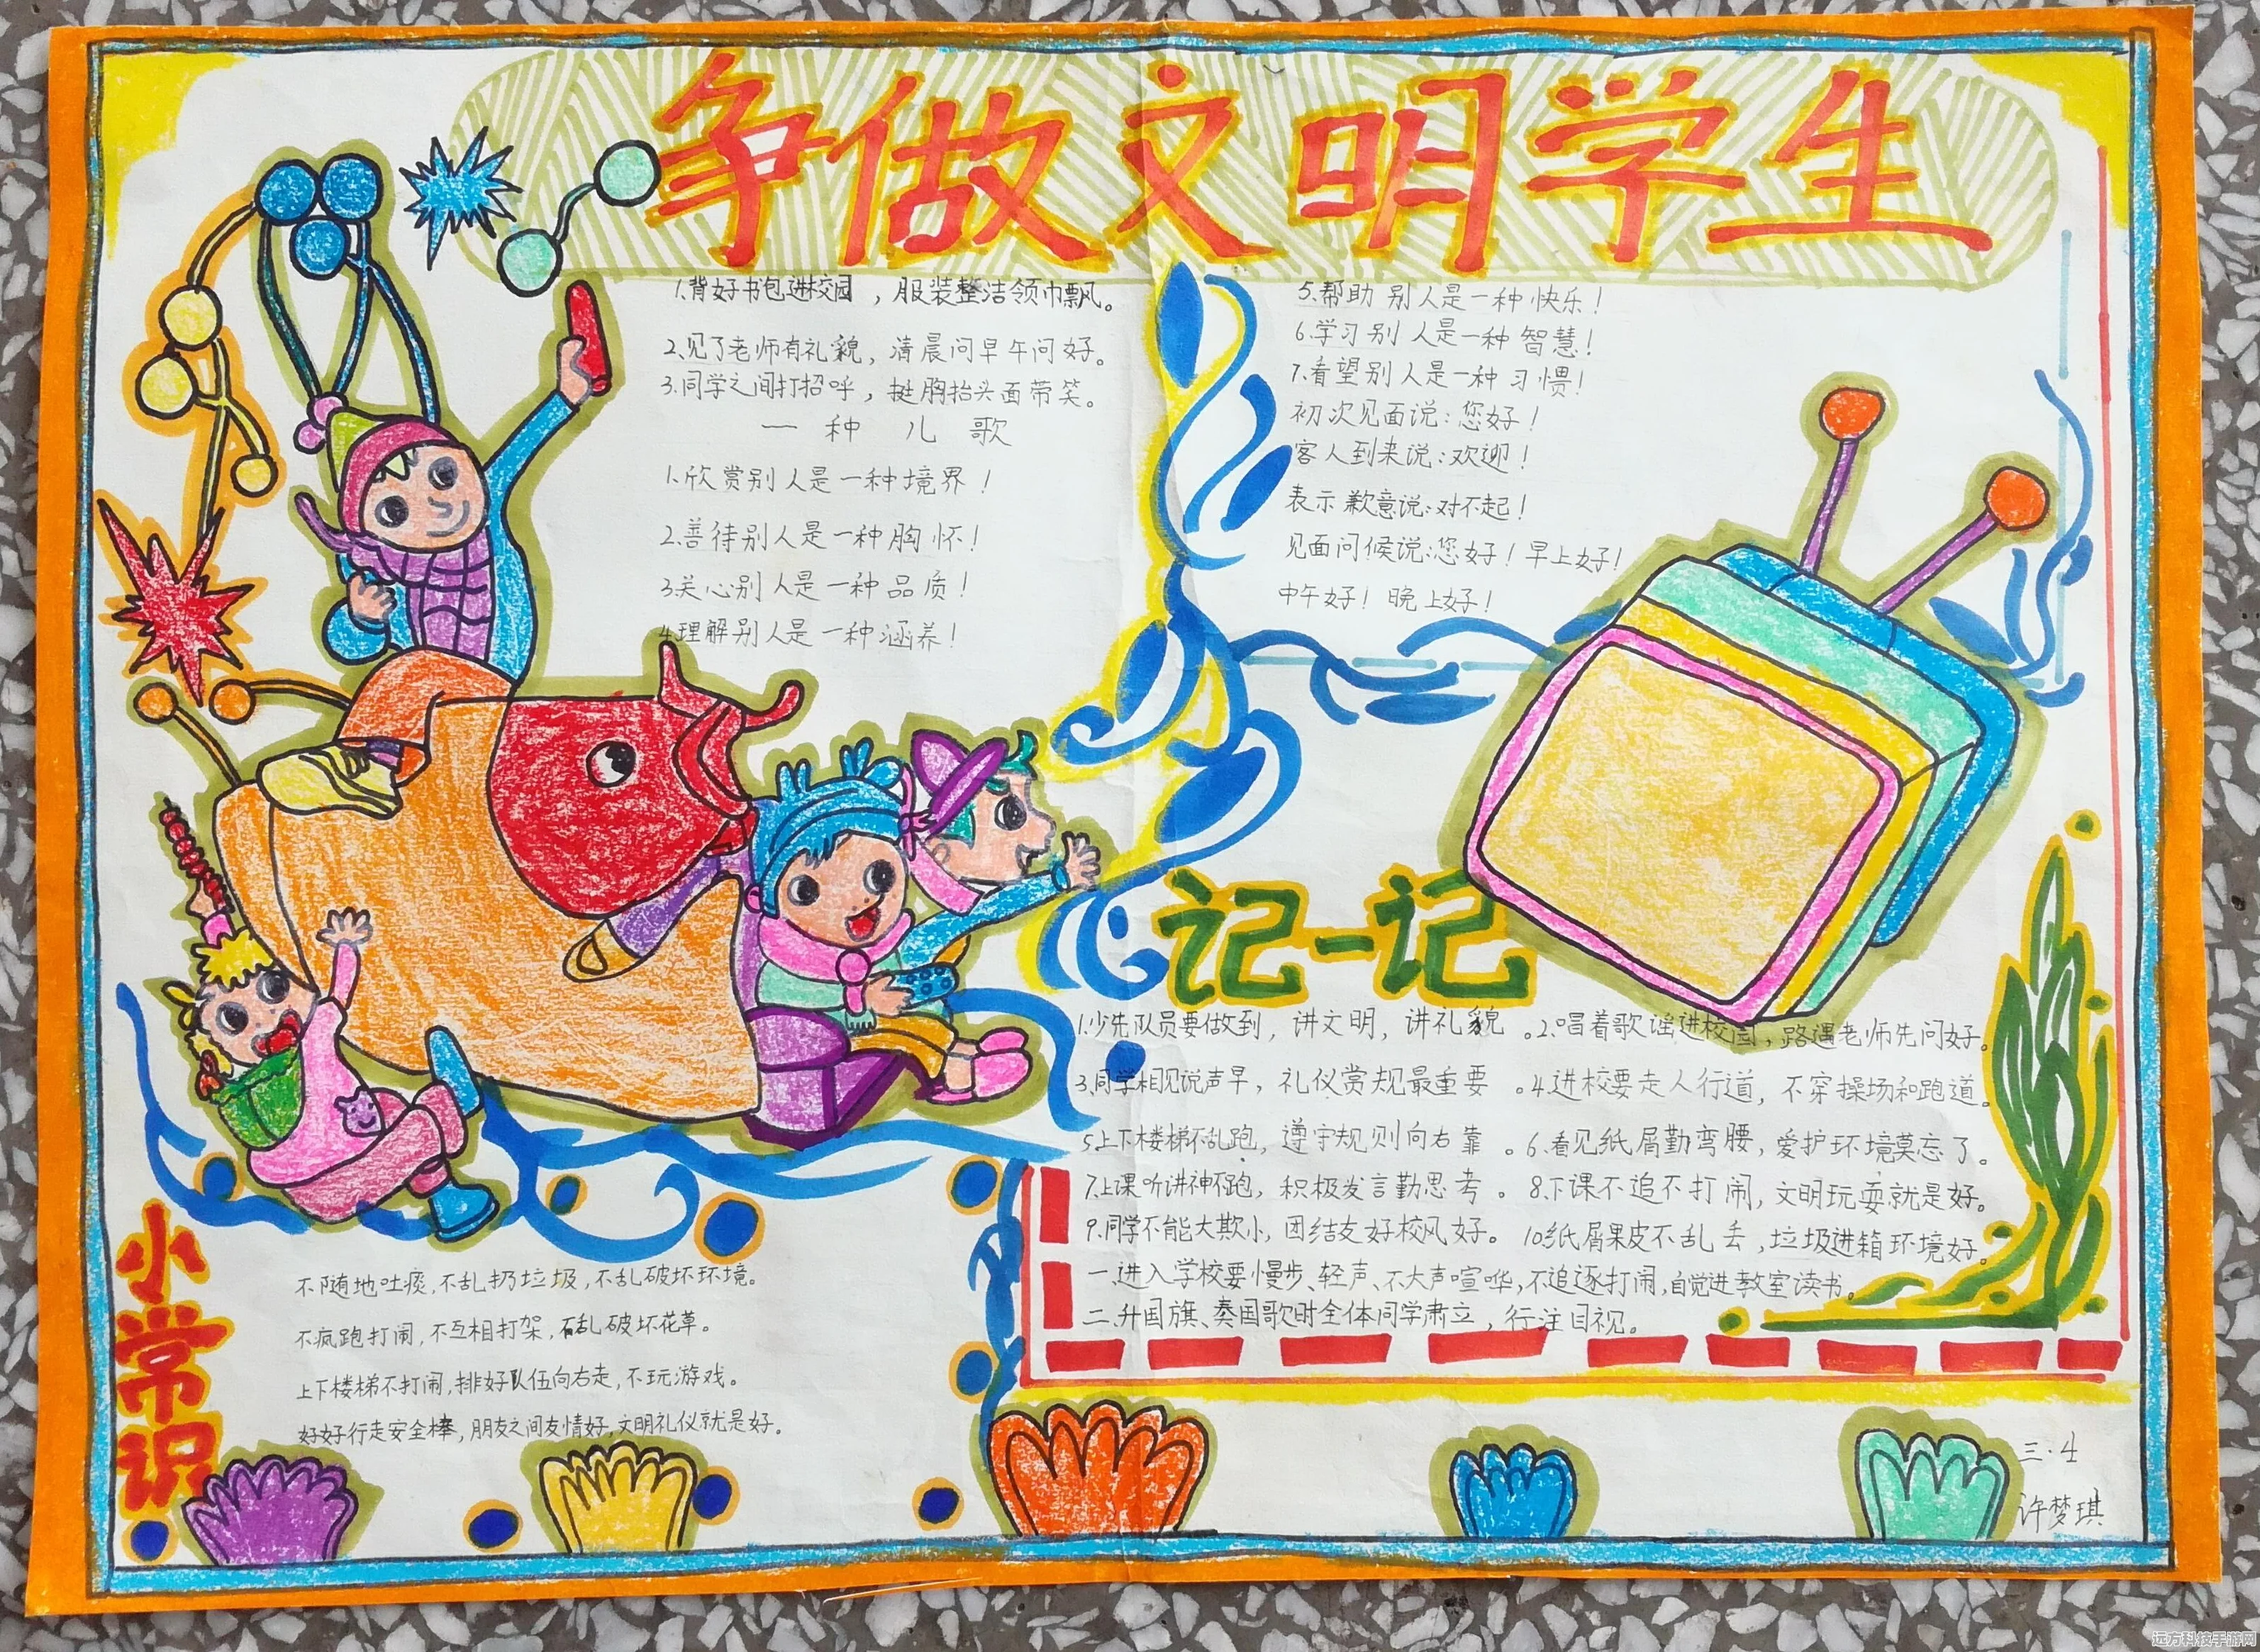 争做文明学生
1.背好书包进校园，服装整洁领巾飘。
2.见了老师有礼貌，清晨问早午问好。
3.同学之间打招呼，挺胸抬头面带笑。
一种儿歌
1.欣赏别人是一种境界！
2.善待别人是一种胸怀！
3.关心别人是一种品质！
4.理解别人是一种涵养！
5.帮助别人是一种快乐！
6.学习别人是一种智慧！
7.看望别人是一种习惯！
初次见面说：您好！
客人到来说：欢迎！
表示歉意说：对不起！
见面问候说：您好！早上好！
中午好！晚上好！
记一记
1.少先队员要做到，讲文明，讲礼貌。2.唱着歌谣进校园，路遇老师先问好。
3.同学相见说声早，礼仪常规最重要。4.进校要走人行道，不穿操场和跑道。
5.上下楼梯不乱跑，遵守规则向右靠。6.看见纸屑勤弯腰，爱护环境莫忘了。
7.上课听讲神不跑，积极发言勤思考。8.下课不追不打闹，文明玩耍就是好。
9.同学不能大欺小，团结友好校风好。10.纸屑果皮不乱丢，垃圾进箱环境好。
一.进入学校要慢步、轻声、不大声喧哗，不追逐打闹，自觉进教室读书。
二.升国旗、奏国歌时全体同学肃立，行注目视。
小常识
不随地吐痰，不乱扔垃圾，不乱破坏环境。
不疯跑打闹，不互相打架，不乱破坏花草。
上下楼梯不打闹，排好队伍向右走，不玩游戏。
好好行走安全棒，朋友之间友情好，文明礼仪就是好。
三·4
许梦琪
远方科技手游网